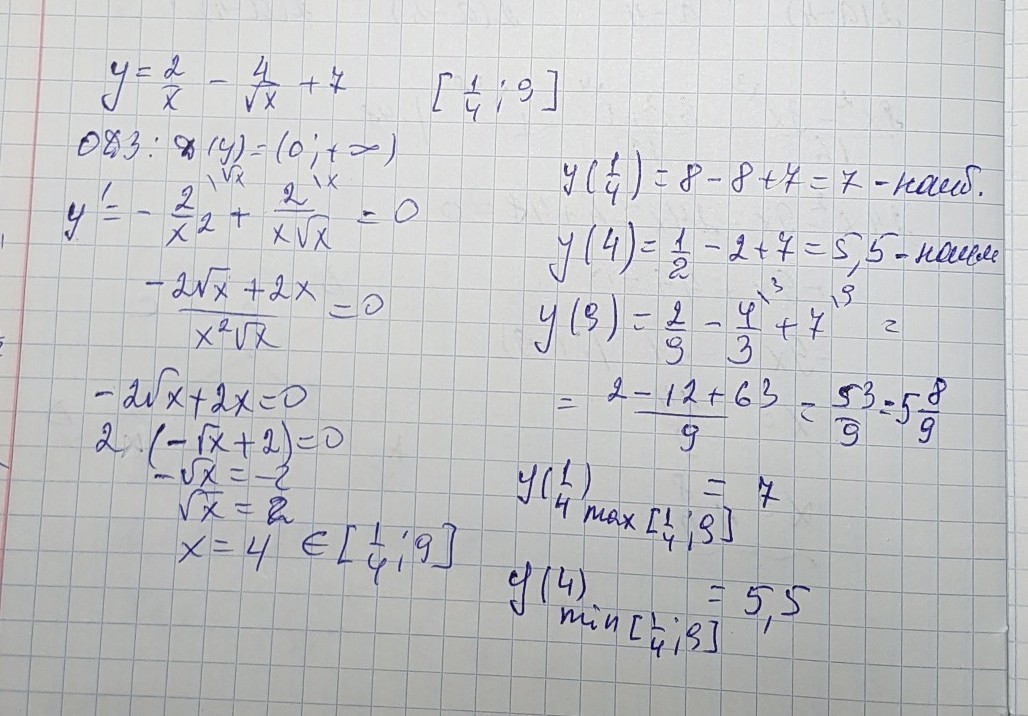 y = 2/x - 4/√x + 7 [1/4 ; 9]
ОДЗ: D(y) = (0 ; +∞)
y' = - 2/x² \√x + 2/(x√x) \x = 0
(-2√x + 2x)/(x²√x) = 0
-2√x + 2x = 0
2 (-√x + 2) = 0
-√x = -2
√x = 2
x = 4 ∈ [1/4 ; 9]
y(1/4) = 8 - 8 + 7 = 7 - наиб.
y(4) = 1/2 - 2 + 7 = 5,5 - наим
y(9) = 2/9 - 4/3 \3 + 7 \9 =
= (2 - 12 + 63)/9 = 53/9 = 5 8/9
y(1/4) max [1/4 ; 9] = 7
y(4) min [1/4 ; 9] = 5,5